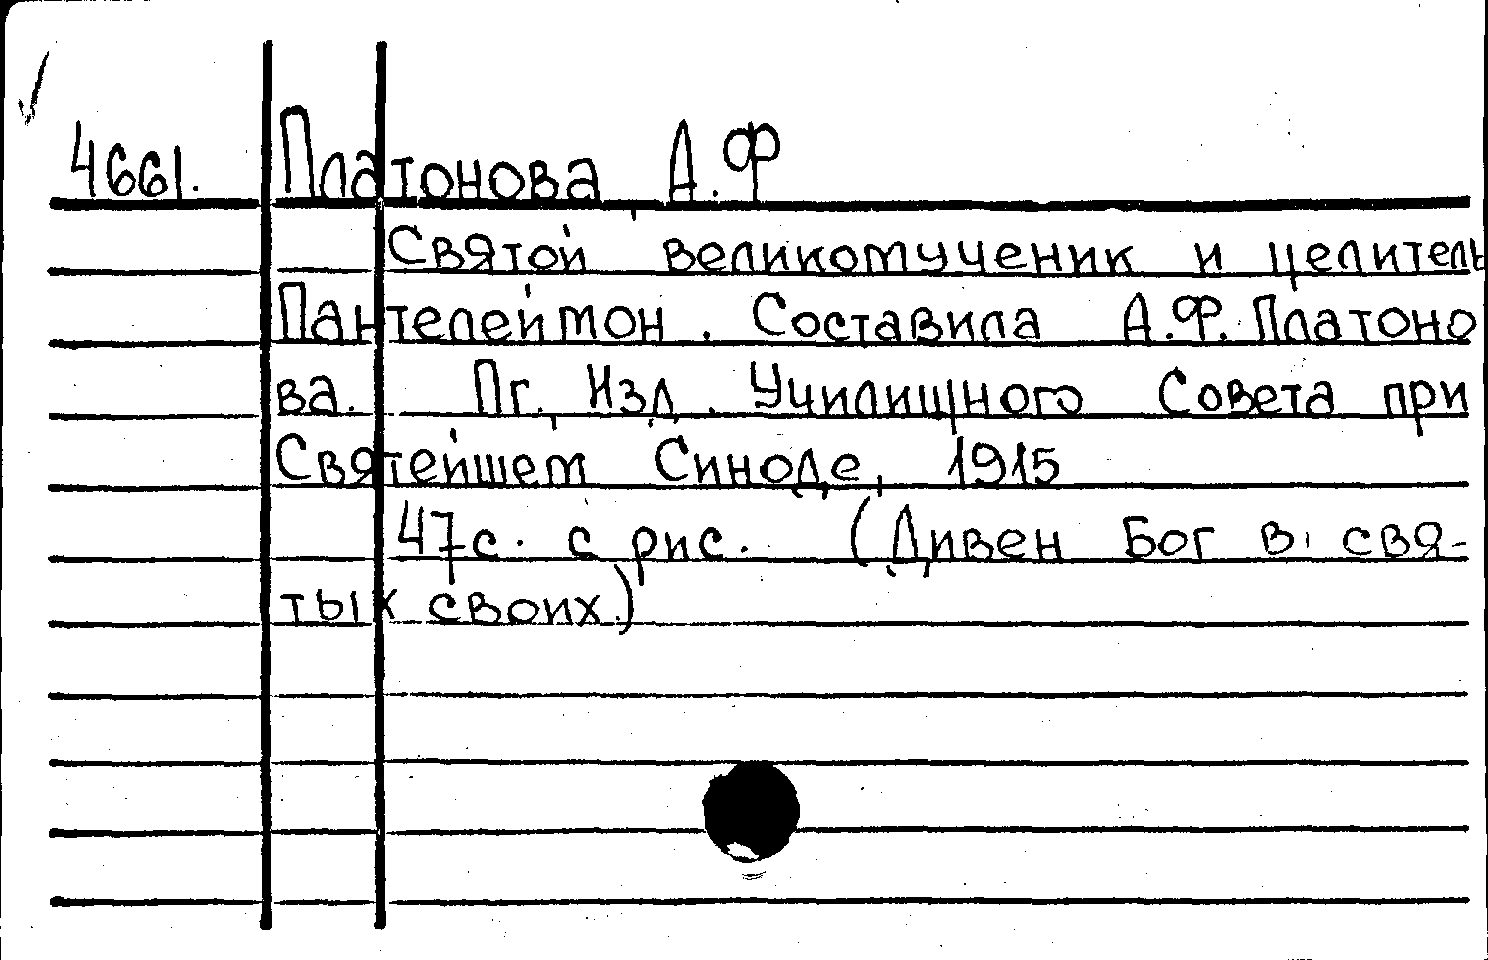 4661. Платонова, А.Ф
Святой великомученик и целитель
Пантелеймон. Составила А.Ф. Платоно
ва. Пг., Изд. Училищного Совета при
Святейшем Синоде, 1915
47с. с рис. (Дивен Бог в свя-
тых своих.)